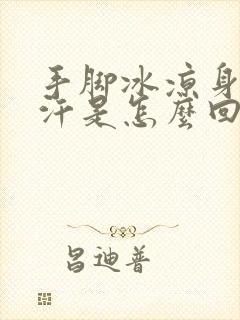 手脚冰凉身
汗是怎麼回
昌迪普